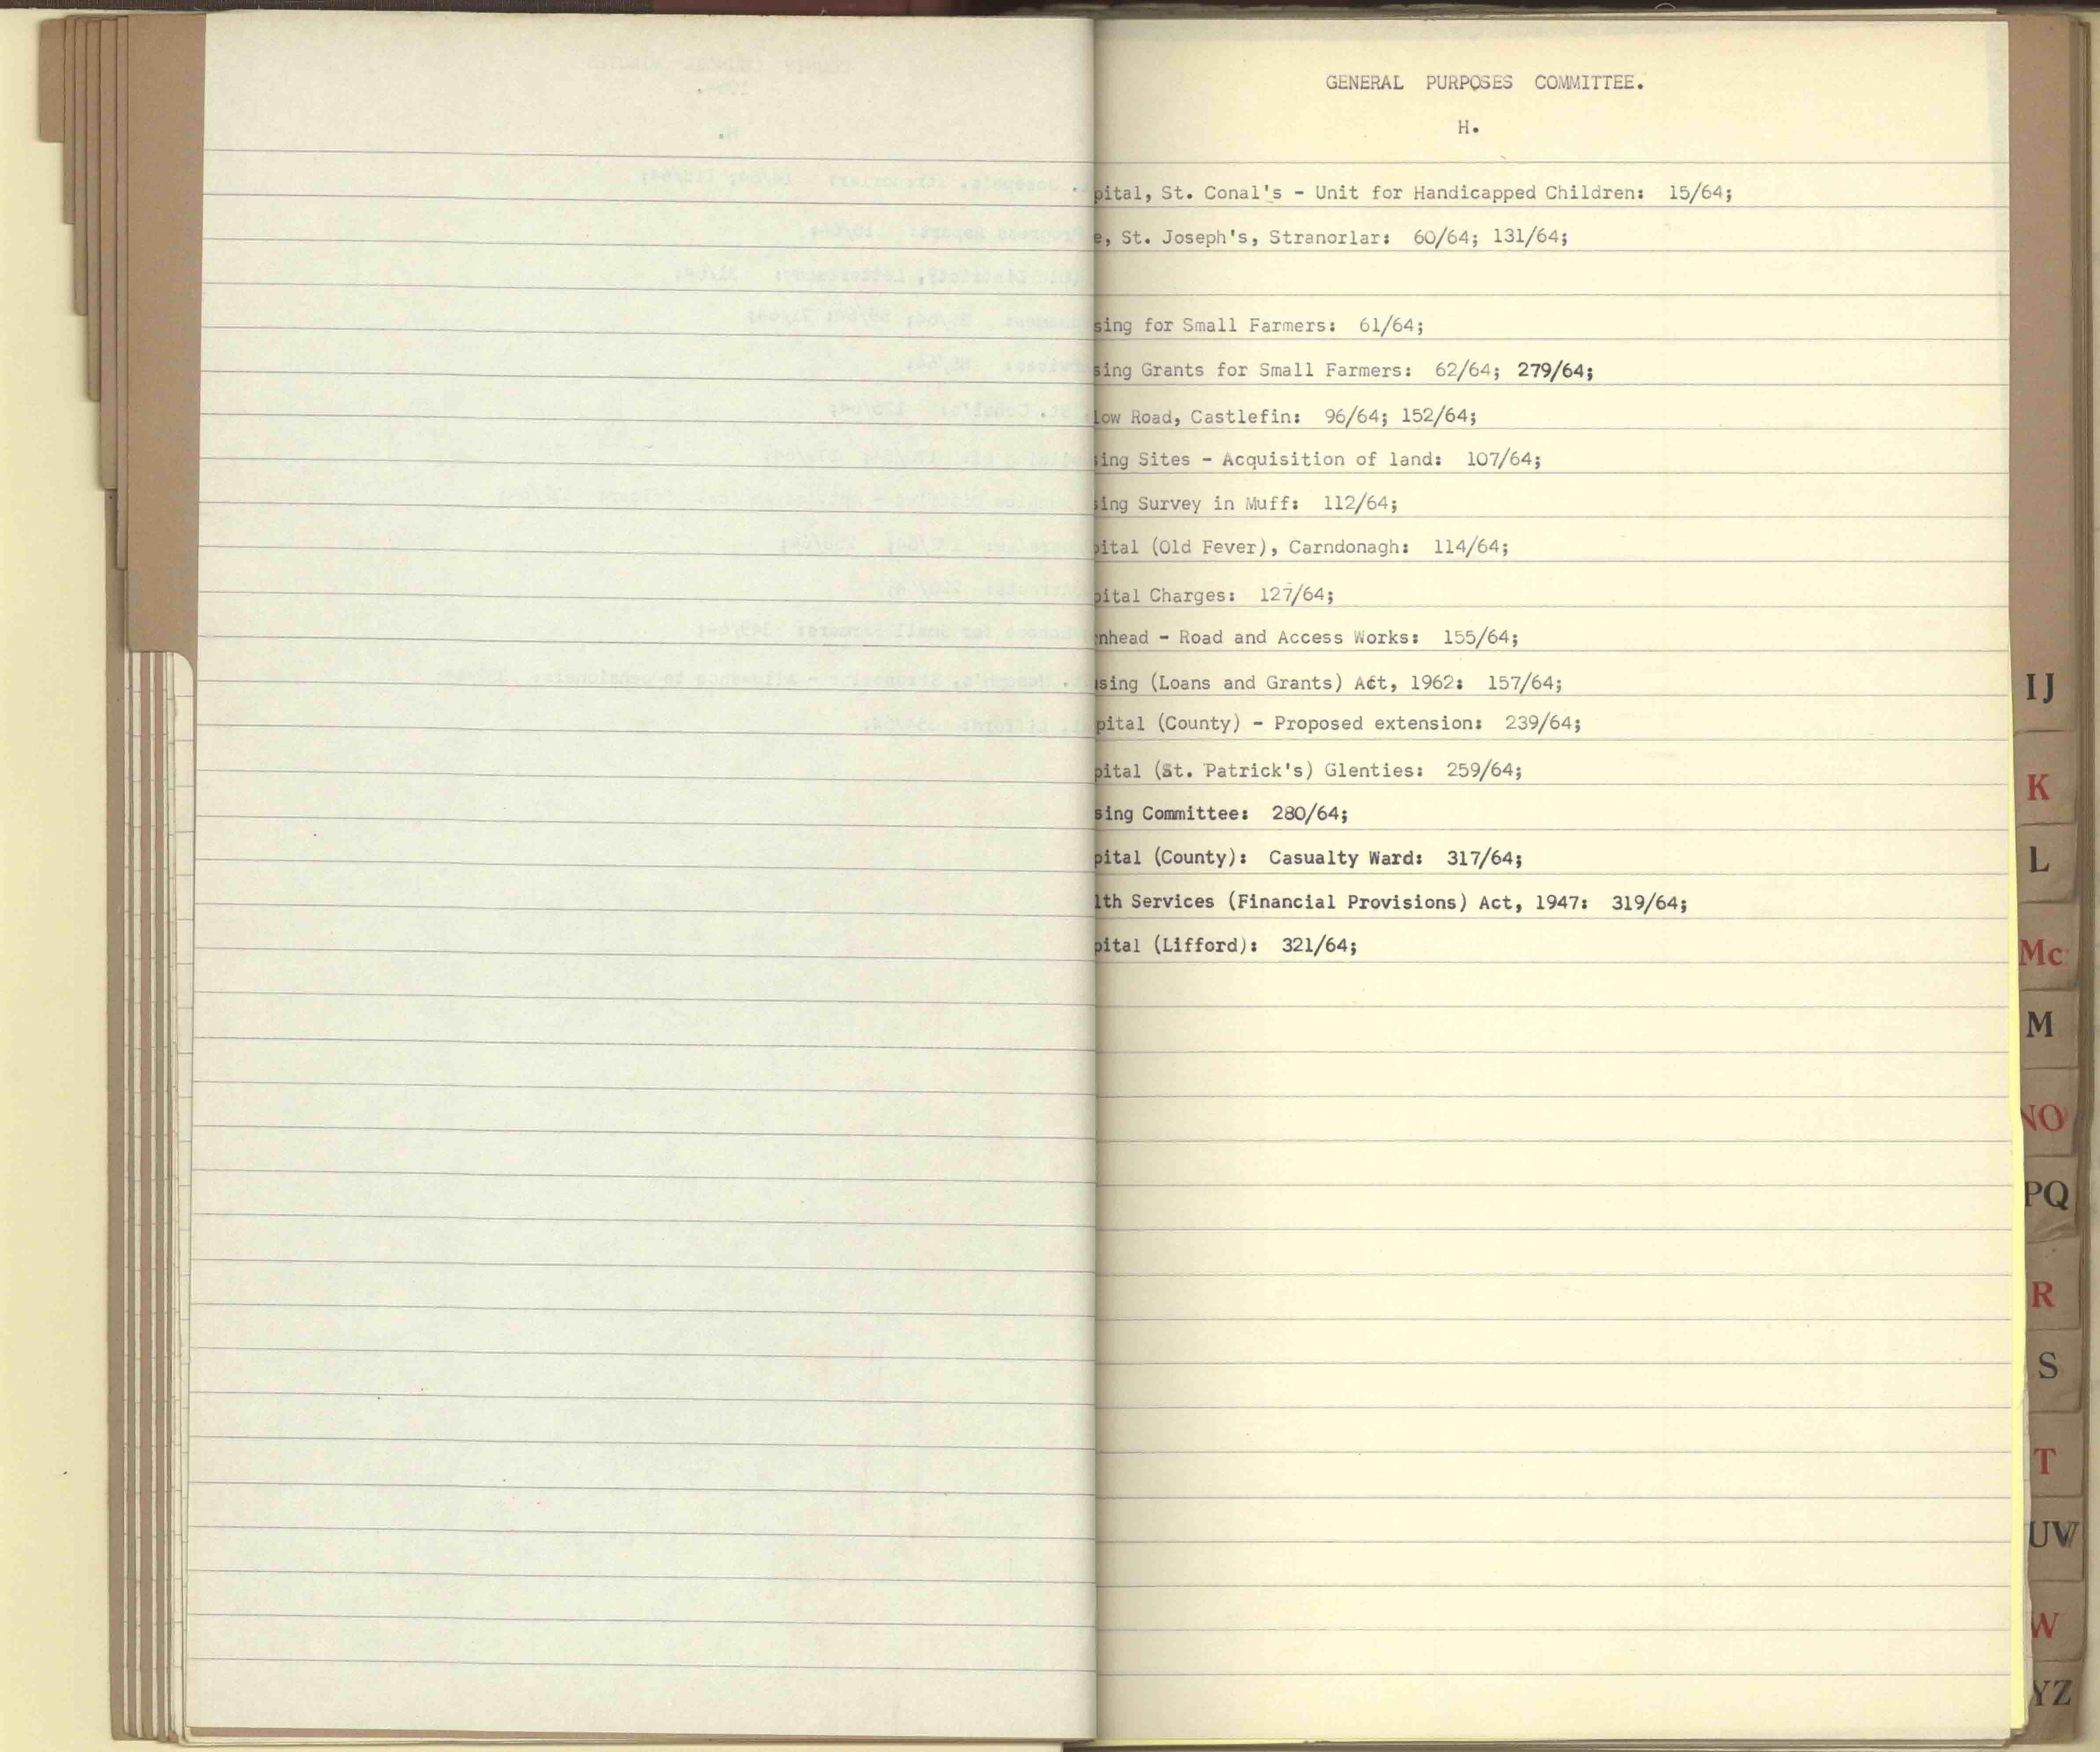 GENERAL PURPOSES COMMITTEE.
H.
pital, St. Conal's - Unit for Handicapped Children: 15/64;
e, St. Joseph's, Stranorlar: 60/64; 131/64;
sing for Small Farmers: 61/64;
sing Grants for Small Farmers: 62/64; 279/64;
low Road, Castlefin: 96/64; 152/64;
sing Sites - Acquisition of land: 107/64;
sing Survey in Muff: 112/64;
pital (Old Fever), Carndonagh: 114/64;
pital Charges: 127/64;
nhead - Road and Access Works: 155/64;
using (Loans and Grants) Act, 1962: 157/64;
pital (County) - Proposed extension: 239/64;
pital (St. Patrick's) Glenties: 259/64;
sing Committee: 280/64;
pital (County): Casualty Ward: 317/64;
lth Services (Financial Provisions) Act, 1947: 319/64;
pital (Lifford): 321/64;
IJ
K
L
Mc
M
NO
PQ
R
S
T
UV
W
YZ